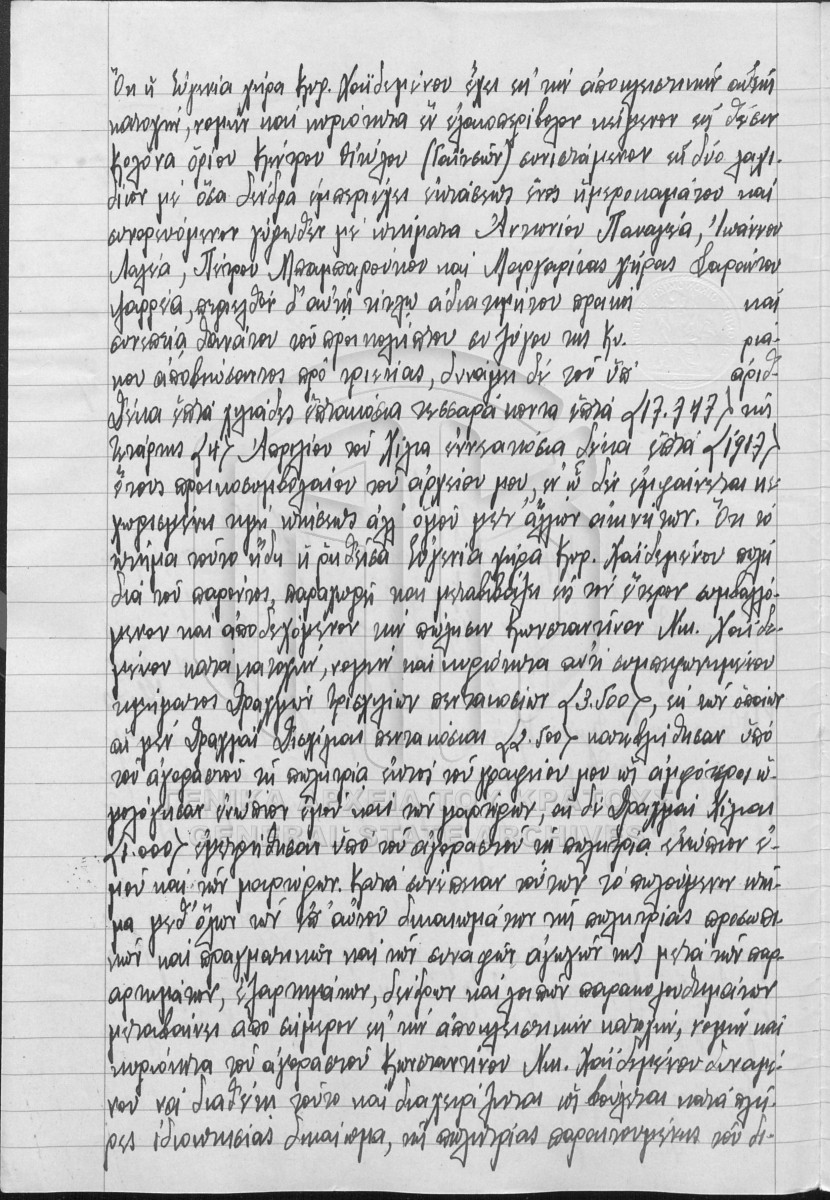 Ὅτι ἡ Εὐγενία χήρα Κυρ. Χαϊδεμένου ἔχει εἰς τὴν ἀποκλειστικὴν αὐτῆς
κατοχήν, νομὴν καὶ κυριότητα ἓν ἐλαιοπερίβολον κείμενον εἰς θέσιν
Κολόνα ὁρίου Κέντρου Οἰτύλου συνιστάμενον εἰς δύο λαχί-
δια μὲ ὅσα δένδρα ἐμπεριέχει ἐκτάσεως ἑνὸς ἡμεροκαμάτου καὶ
συνορευόμενον γύρωθεν μὲ κτήματα Ἀντωνίου Παναγέα, Ἰωάννου
Λαλέα, Πέτρου Μπαμπαρούτσου καὶ Μαργαρίτας χήρας Σαράντου
περιελθὸν δ' αὐτῇ τίτλῳ ἀδιατιμήτου προικὸς καὶ
συνεπείᾳ θανάτου τοῦ προικολήπτου συζύγου της Κυ. ριά-
κου ἀποβιώσαντος πρὸ τριετίας, δυνάμει δὲ τοῦ ὑπ' ἀριθ.
δέκα ἑπτὰ χιλιάδες ἑπτακόσια τεσσαράκοντα ἑπτὰ {17.747} τῆς
τετάρτης {4} Ἀπριλίου τοῦ χίλια ἐννεακόσια δέκα ἑπτὰ {1917}
ἔτους προικοσυμβολαίου τοῦ ἀρχείου μου, ἐν ᾧ δὲν ἐμφαίνεται κε-
χωρισμένη τιμὴ κτήσεως ἀλλ' ὁμοῦ μετ' ἄλλων ἀκινήτων. Ὅτι τὸ
κτῆμα τοῦτο ἤδη ἡ ῥηθεῖσα Εὐγενία χήρα Κυρ. Χαϊδεμένου πωλεῖ
διὰ τοῦ παρόντος, παραχωρεῖ καὶ μεταβιβάζει εἰς τὸν ἕτερον συμβαλλό-
μενον καὶ ἀποδεχόμενον τὴν πώλησιν Κωνσταντῖνον Νικ. Χαϊδε-
μένον κατὰ κατοχήν, νομὴν καὶ κυριότητα ἀντὶ συμπεφωνημένου
τιμήματος δραχμῶν τρισχιλίων πεντακοσίων {3.500}, ἐκ τῶν ὁποίων
αἱ μὲν δραχμαὶ δισχίλιαι πεντακόσιαι {2.500} κατεβλήθησαν ὑπὸ
τοῦ ἀγοραστοῦ τῇ πωλητρίᾳ ἐκτὸς τοῦ γραφείου μου ὡς ἀμφότεροι ὡ-
μολόγησαν ἐνώπιον ἐμοῦ καὶ τῶν μαρτύρων, αἱ δὲ δραχμαὶ χίλιαι
{1.000} ἐμετρήθησαν ὑπὸ τοῦ ἀγοραστοῦ τῇ πωλητρίᾳ ἐνώπιον ἐ-
μοῦ καὶ τῶν μαρτύρων. Κατὰ συνέπειαν τούτων τὸ πωλούμενον κτῆ-
μα μεθ' ὅλων τῶν ἐπ' αὐτοῦ δικαιωμάτων τῆς πωλητρίας προσωπι-
κῶν καὶ πραγματικῶν καὶ τῶν συναφῶν ἀγωγῶν της μετὰ τῶν παρ-
αρτημάτων, ἐξαρτημάτων, δένδρων καὶ λοιπῶν παρακολουθημάτων
μεταβαίνει ἀπὸ σήμερον εἰς τὴν ἀποκλειστικὴν κατοχήν, νομὴν καὶ
κυριότητα τοῦ ἀγοραστοῦ Κωνσταντίνου Νικ. Χαϊδεμένου δυναμέ-
νου νὰ διαθέτῃ τοῦτο καὶ διαχειρίζεται ὡς βούλεται κατὰ πλῆ-
ρες ἰδιοκτησίας δικαίωμα, τῆς πωλητρίας παραιτουμένης τοῦ δι-
ΓΕΝΙΚΑ ΑΡΧΕΙΑ ΤΟΥ ΚΡΑΤΟΥΣ
GENERAL STATE ARCHIVES